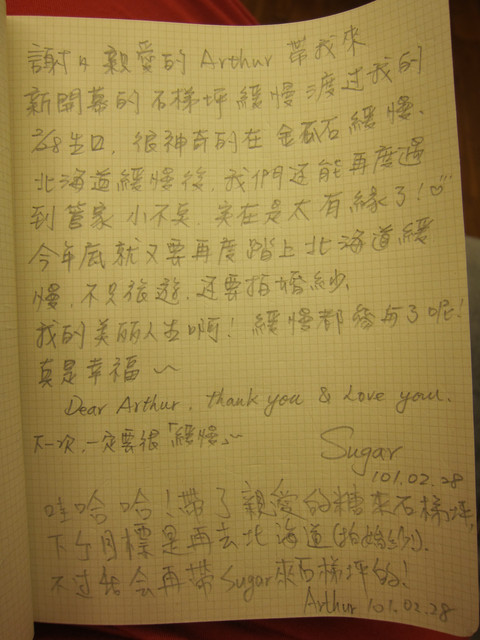 謝謝親愛的 Arthur 帶我來
新開幕的石梯坪緩慢渡過我的
2/28生日,很神奇的在金瓜石緩慢、
北海道緩慢後,我們還能再度遇
到管家小不點,實在是太有緣了!
今年底就又要再度踏上北海道緩
慢,不只旅遊,還要拍婚紗,
我的美丽人生啊!緩慢都參与了呢!
真是幸福~
Dear Arthur, thank you & Love you.
下一次,一定要很「緩慢」~
Sugar
101.02.28
哇哈哈!帶了親愛的糖來石梯坪,
下个月標是再去北海道(拍婚紗).
不过 会再帶Sugar來石梯坪的!
Arthur 101.02.28